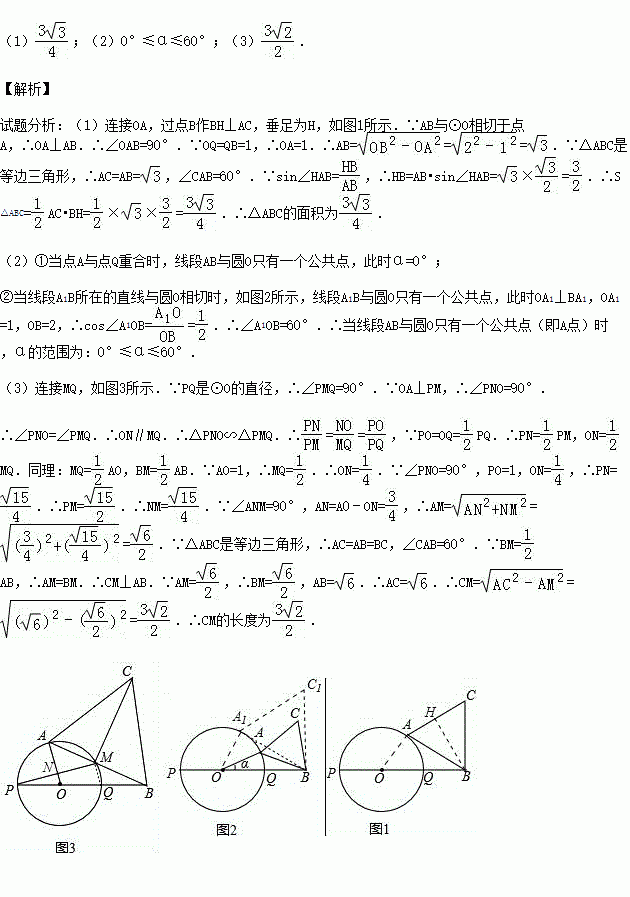 （1）3√3/4；（2）0°≤α≤60°；（3）3√2/2．
【解析】
试题分析：（1）连接OA，过点B作BH⊥AC，垂足为H，如图1所示．∵AB与⊙O相切于点
A，∴OA⊥AB．∴∠OAB=90°．∵OQ=QB=1，∴OA=1．∴AB=√(OB²－OA²)=√(2²－1²)=√3．∵△ABC是
等边三角形，∴AC=AB=√3，∠CAB=60°．∵sin∠HAB=HB/AB，∴HB=AB•sin∠HAB=√3×√3/2=3/2．∴S
△ABC=1/2 AC•BH=1/2×√3×3/2=3√3/4．∴△ABC的面积为3√3/4．
（2）①当点A与点Q重合时，线段AB与圆O只有一个公共点，此时α=0°；
②当线段A₁B所在的直线与圆O相切时，如图2所示，线段A₁B与圆O只有一个公共点，此时OA₁⊥BA₁，OA₁
=1，OB=2，∴cos∠A₁OB=A₁O/OB=1/2．∴∠A₁OB=60°．∴当线段AB与圆O只有一个公共点（即A点）时
，α的范围为：0°≤α≤60°．
（3）连接MQ，如图3所示．∵PQ是⊙O的直径，∴∠PMQ=90°．∵OA⊥PM，∴∠PNO=90°．
∴∠PNO=∠PMQ．∴ON∥MQ．∴△PNO∽△PMQ．∴PN/PM=NO/MQ=PO/PQ，∵PO=OQ=1/2 PQ．∴PN=1/2 PM，ON=1/2
MQ．同理：MQ=1/2 AO，BM=1/2 AB．∵AO=1，∴MQ=1/2．∴ON=1/4．∵∠PNO=90°，PO=1，ON=1/4，∴PN=
√15/4．∴PM=√15/2．∴NM=√15/4．∵∠ANM=90°，AN=AO－ON=3/4，∴AM=√(AN²+NM²)=
√((3/4)²+(√15/4)²)=√6/2．∵△ABC是等边三角形，∴AC=AB=BC，∠CAB=60°．∵BM=1/2
AB，∴AM=BM．∴CM⊥AB．∵AM=√6/2，∴BM=√6/2，AB=√6．∴AC=√6．∴CM=√(AC²－AM²)=
√((√6)²－(√6/2)²)=3√2/2．∴CM的长度为3√2/2．
C
A
M
N
P
O
Q
B
图3
C₁
A₁
A
C
P
O
α
Q
B
图2
C
H
A
P
O
Q
B
图1